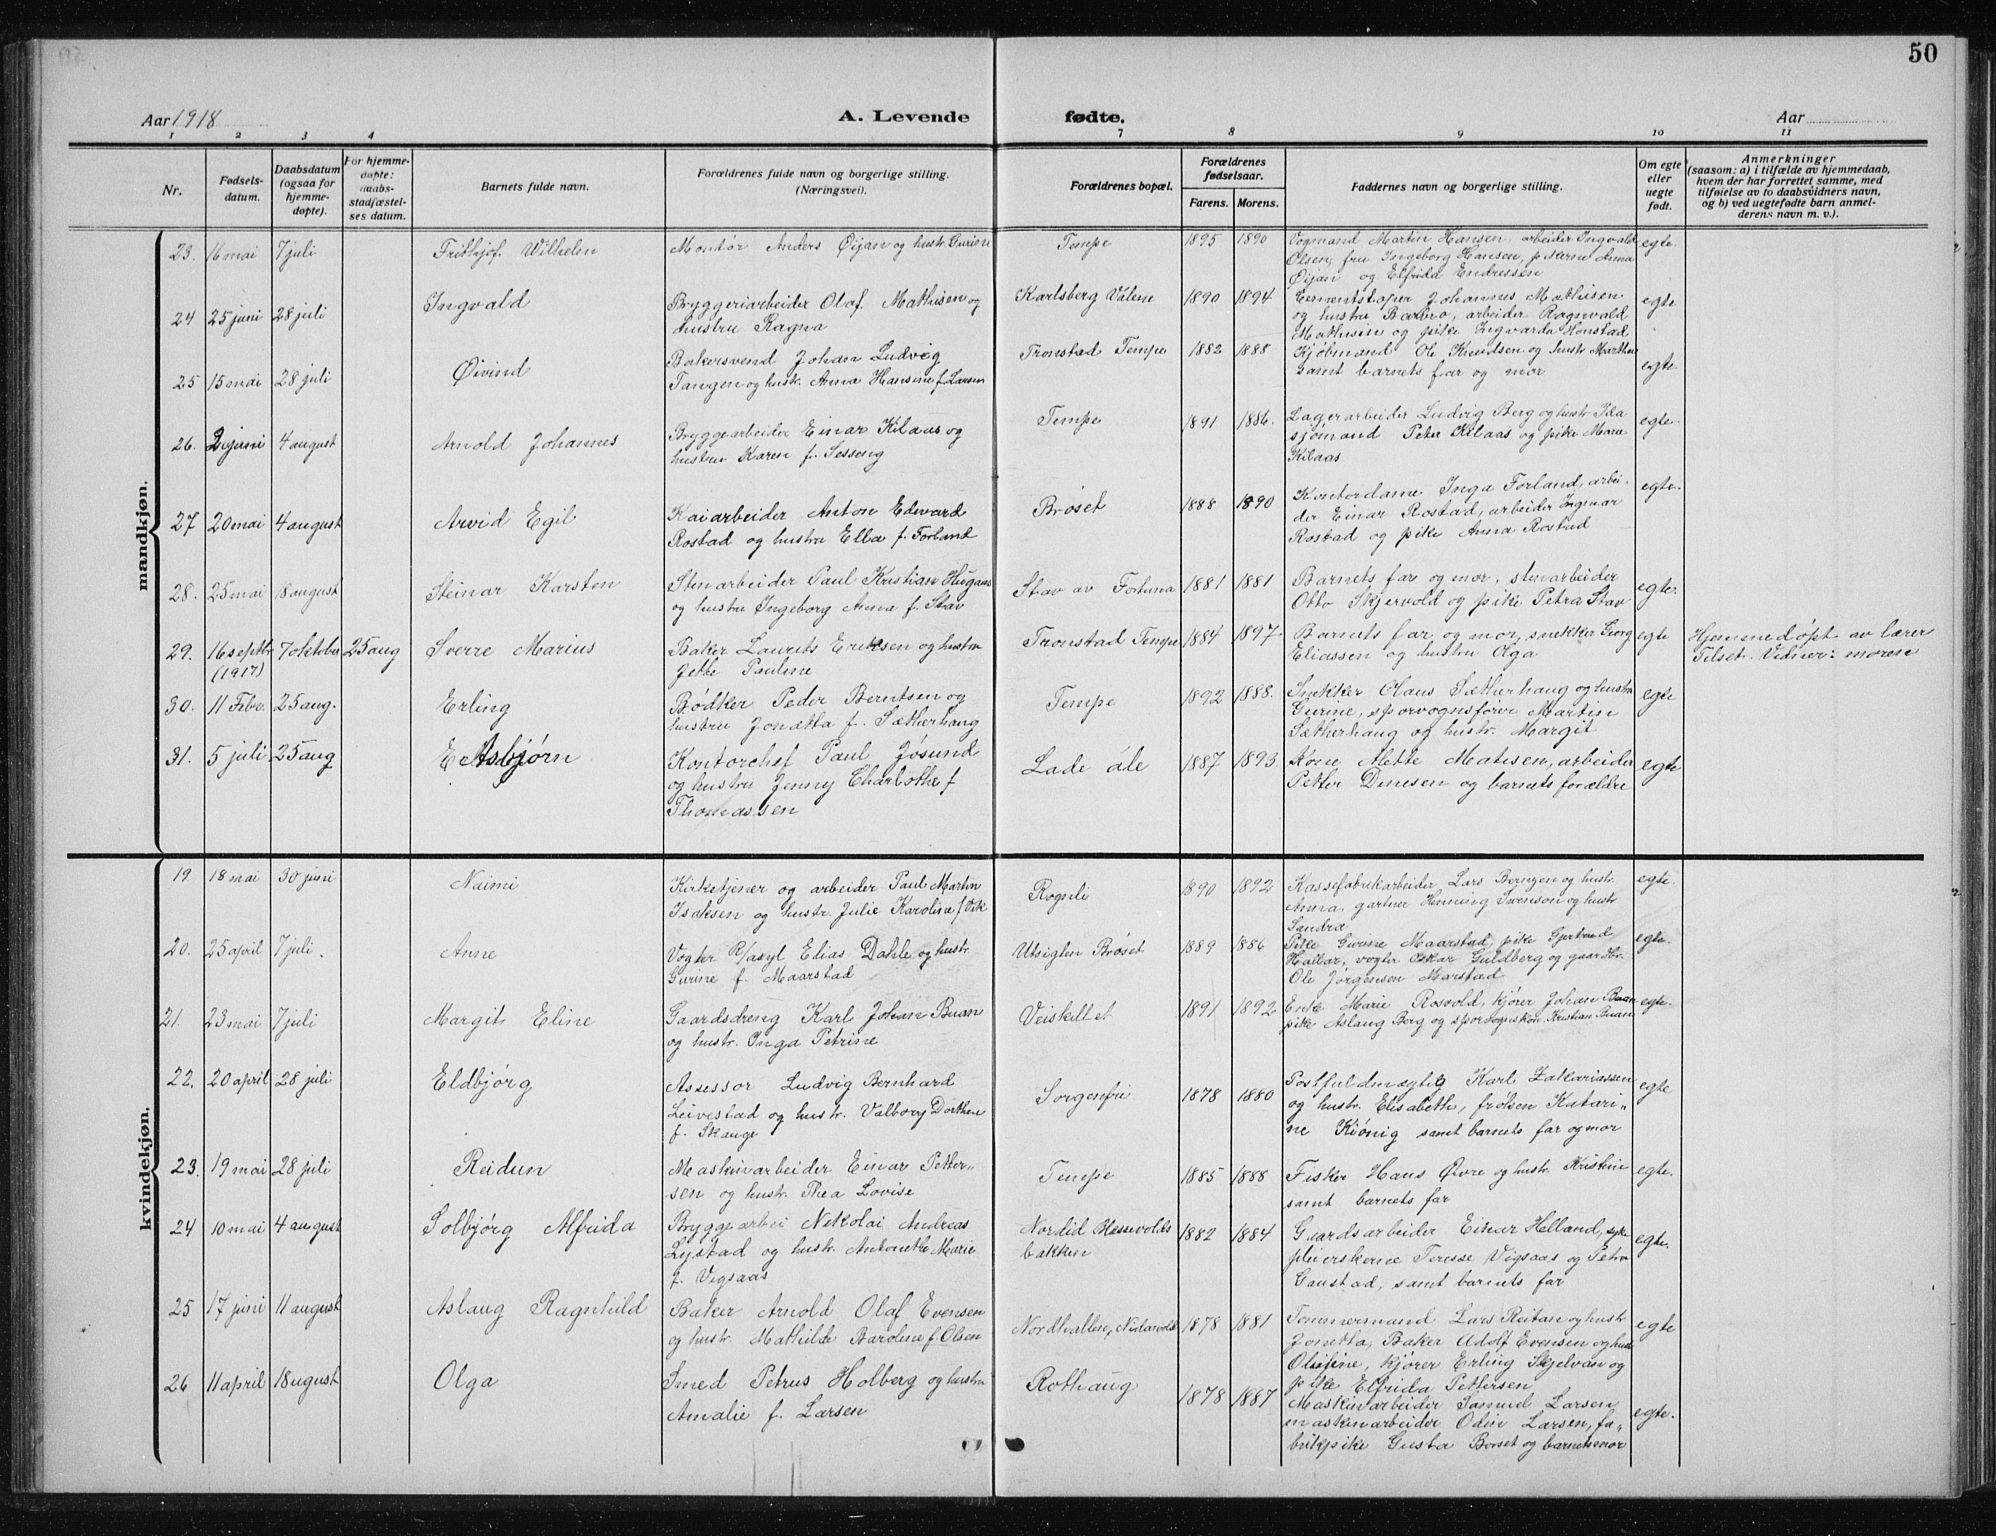 50
Aar 1918
A. Levende
fødte.
Aar
1 2 3 4 7 8 9 10 11
Nr.
Fødsels-
datum.
Daabsdatum
(ogsaa for
hjemme-
døpte).
For hjemme-
døpte:
daabs-
stadfæstel-
ses datum.
Barnets fulde navn.
Forældrenes fulde navn og borgerlige stilling.
(Næringsvei).
Forældrenes bopæl.
Forældrenes
fødselsaar.
Farens. Morens.
Faddernes navn og borgerlige stilling.
Om egte
eller
uegte
født.
Anmerkninger
(saasom: a) i tilfælde av hjemmedaab,
hvem der har forrettet samme, med
tilføielse av to daabsvidners navn,
og b) ved uegtefødte barn anmel-
derens navn m. v.).
mandkjøn.
23. 16 mai 7 juli Frithjof Wilhelm
Montør Anders Øijan og hustr. Gurine
Tempe 1895 1890
Vognmand Martin Hansen, arbeider Ingvald
Olsen, fru Ingeborg Hansen, pikerne Anna
Øijan og Elfrida Endressen
egte.
24 25 juni 28 juli Ingvald
Bryggeriarbeider Olaf Mathisen og
hustru Ragna
Karlsberg Valene 1890 1894
Cementstøper Johannes Mathisen
og hustru Barbro, arbeider Ragnvald
Mathisen og pike Ingvarda Honstad
egte
25 15 mai 28 juli Øivind
Bakersvend Johan Ludvig
Tangen og hustr. Anna Hansine f. Larsen
Tronstad Tempe 1882 1888
Kjøbmand O. Knudsen og hustr. Marthe
samt barnets far og mor
egte
26. 2 juni 4 august Arnold Johannes
Bryggearbeider Einar Kilaas og
hustru Karen f. Sesseng
Tempe 1891 1886.
Lagerarbeider Ludvig Berg og hustr. Ida
sjømand Peter Kilaas og pike Marie
Kilaas
egte.
27 20 mai 4 august Arvid Egil
Kaiarbeider Anton Edward
Rostad og hustru Ella f. Forland
Brøset 1888 1890
Kontordame Inga Forland, arbei-
der Einar Rostad, arbeider Ingmar
Rostad og pike Anna Rostad
egte.
28. 25 mai 18 august Steinar Karsten
Stenarbeider Paul Kristian Hugaas
og hustru Ingeborg Anna f. Stav
Stav av Fortuna 1881 1881
Barnets far og mor, stenarbeider
Otto Skjervold og pike Petra Stav
egte.
29. 16 septbr (1917) 7 oktober 25 aug Sverre Marius
Baker Laurits Eriksen og hustru
Jette Pauline
Tronstad Tempe 1884 1897.
Barnets far og mor, snekker Georg
Eliassen og hustru Olga
egte
Hjemmedøpt av lærer
Tilset. Vidner: moren
30. 11 Febr. 25 aug. Erling
Bødker Peder Berntsen og
hustru Jonetta f. Sætherhaug
Tempe 1892 1888.
Snekker Olaus Sætherhaug og hustru
Gurine, sporvognsfører Martin
Sætherhaug og hustr. Margit
egte
31. 5 juli 25 aug Asbjørn
Kontorchef Paul Jøsund
og hustru Jenny Charlotte f.
Thomassen
Lade ale 1887 1893
Kone Mette Matisen, arbeider
Petter Dinesen og barnets forældre
egte
kvindekjøn.
19. 18 mai 30 juni Naimi
Kirketjener og arbeider Paul Martin
Isaksen og hustr. Julie Karoline f. Vik
Rognli 1890 1892
Kassefabrikarbeider Lars Berntzen og hustr.
Anna, gartner Henning Svenson og hustr
Sandra
egte.
20. 25 april 7 juli. Anne
Vogter R/asyl Elias Dahle og hustr.
Gurine f. Maarstad
Utsigten Brøset 1889 1886
Pike Gurine Maarstad, pike Gjertrud
Hallar, vogter Oskar Guldberg og gaardbr.
Ole Jørgensen Marstad
egte.
21. 23 mai 7 juli Margit Eline
Gaardsdreng Karl Johan Buan
og hustr. Inga Petrine
Veiskillet 1891 1892
Enke Marie Rosvold, kjører Johan Buan
pike Aslaug Berg og sporvognskon. Kristian Buan
egte.
22. 20 april 28 juli Eldbjørg
Assessor Ludvig Bernhard
Leivestad og hustr. Valborg Dorthea
f. Skauge
Sorgenfri 1878 1880
Postfuldmægtig Karl Zakariassen
og hustr. Elisabeth, frøken Katari-
ne Kiønig samt barnets far og mor
egte
23. 19 mai 28 juli Reidun
Maskinarbeider Einar Petter-
sen og hustr. Thea Lovise
Tempe 1885 1888
Fisker Hans Øvre og hustr. Kristine
samt barnets far
egte.
24 10 mai 4 august Solbjørg Alfrida
Bryggearbei Nikolai Andreas
Lystad og hustr. Antonette Marie
f. Vigsaas
Nordlid Blæsevolds
bakken 1882 1884
Gaardsarbeider Einar Helland, syke
pleierskerne Terese Vigsaas og Petra
Gaustad, samt barnets far
egte.
25 17 juni 11 august Aslaug Ragnhild
Baker Arnold Olaf Evensen
og hustr. Mathilde Karoline f. Olsen
Nordhallene, Nidarvold 1878 1881
Tømmermand Lars Reitan og hustr
Jonetta, Baker Adolf Evensen og hustr
Olufine, kjører Erling Skjelvan og
pike Elfrida Pettersen
egte
26 11 april 18 august Olga
Smed Petrus Holberg og hustru
Amalie f. Larsen
Rothaug 1878 1887
Maskinarbeider Samuel Larsen
maskinarbeider Odin Larsen, fa-
brikpike Gusta Borset og barnets mor
egte.